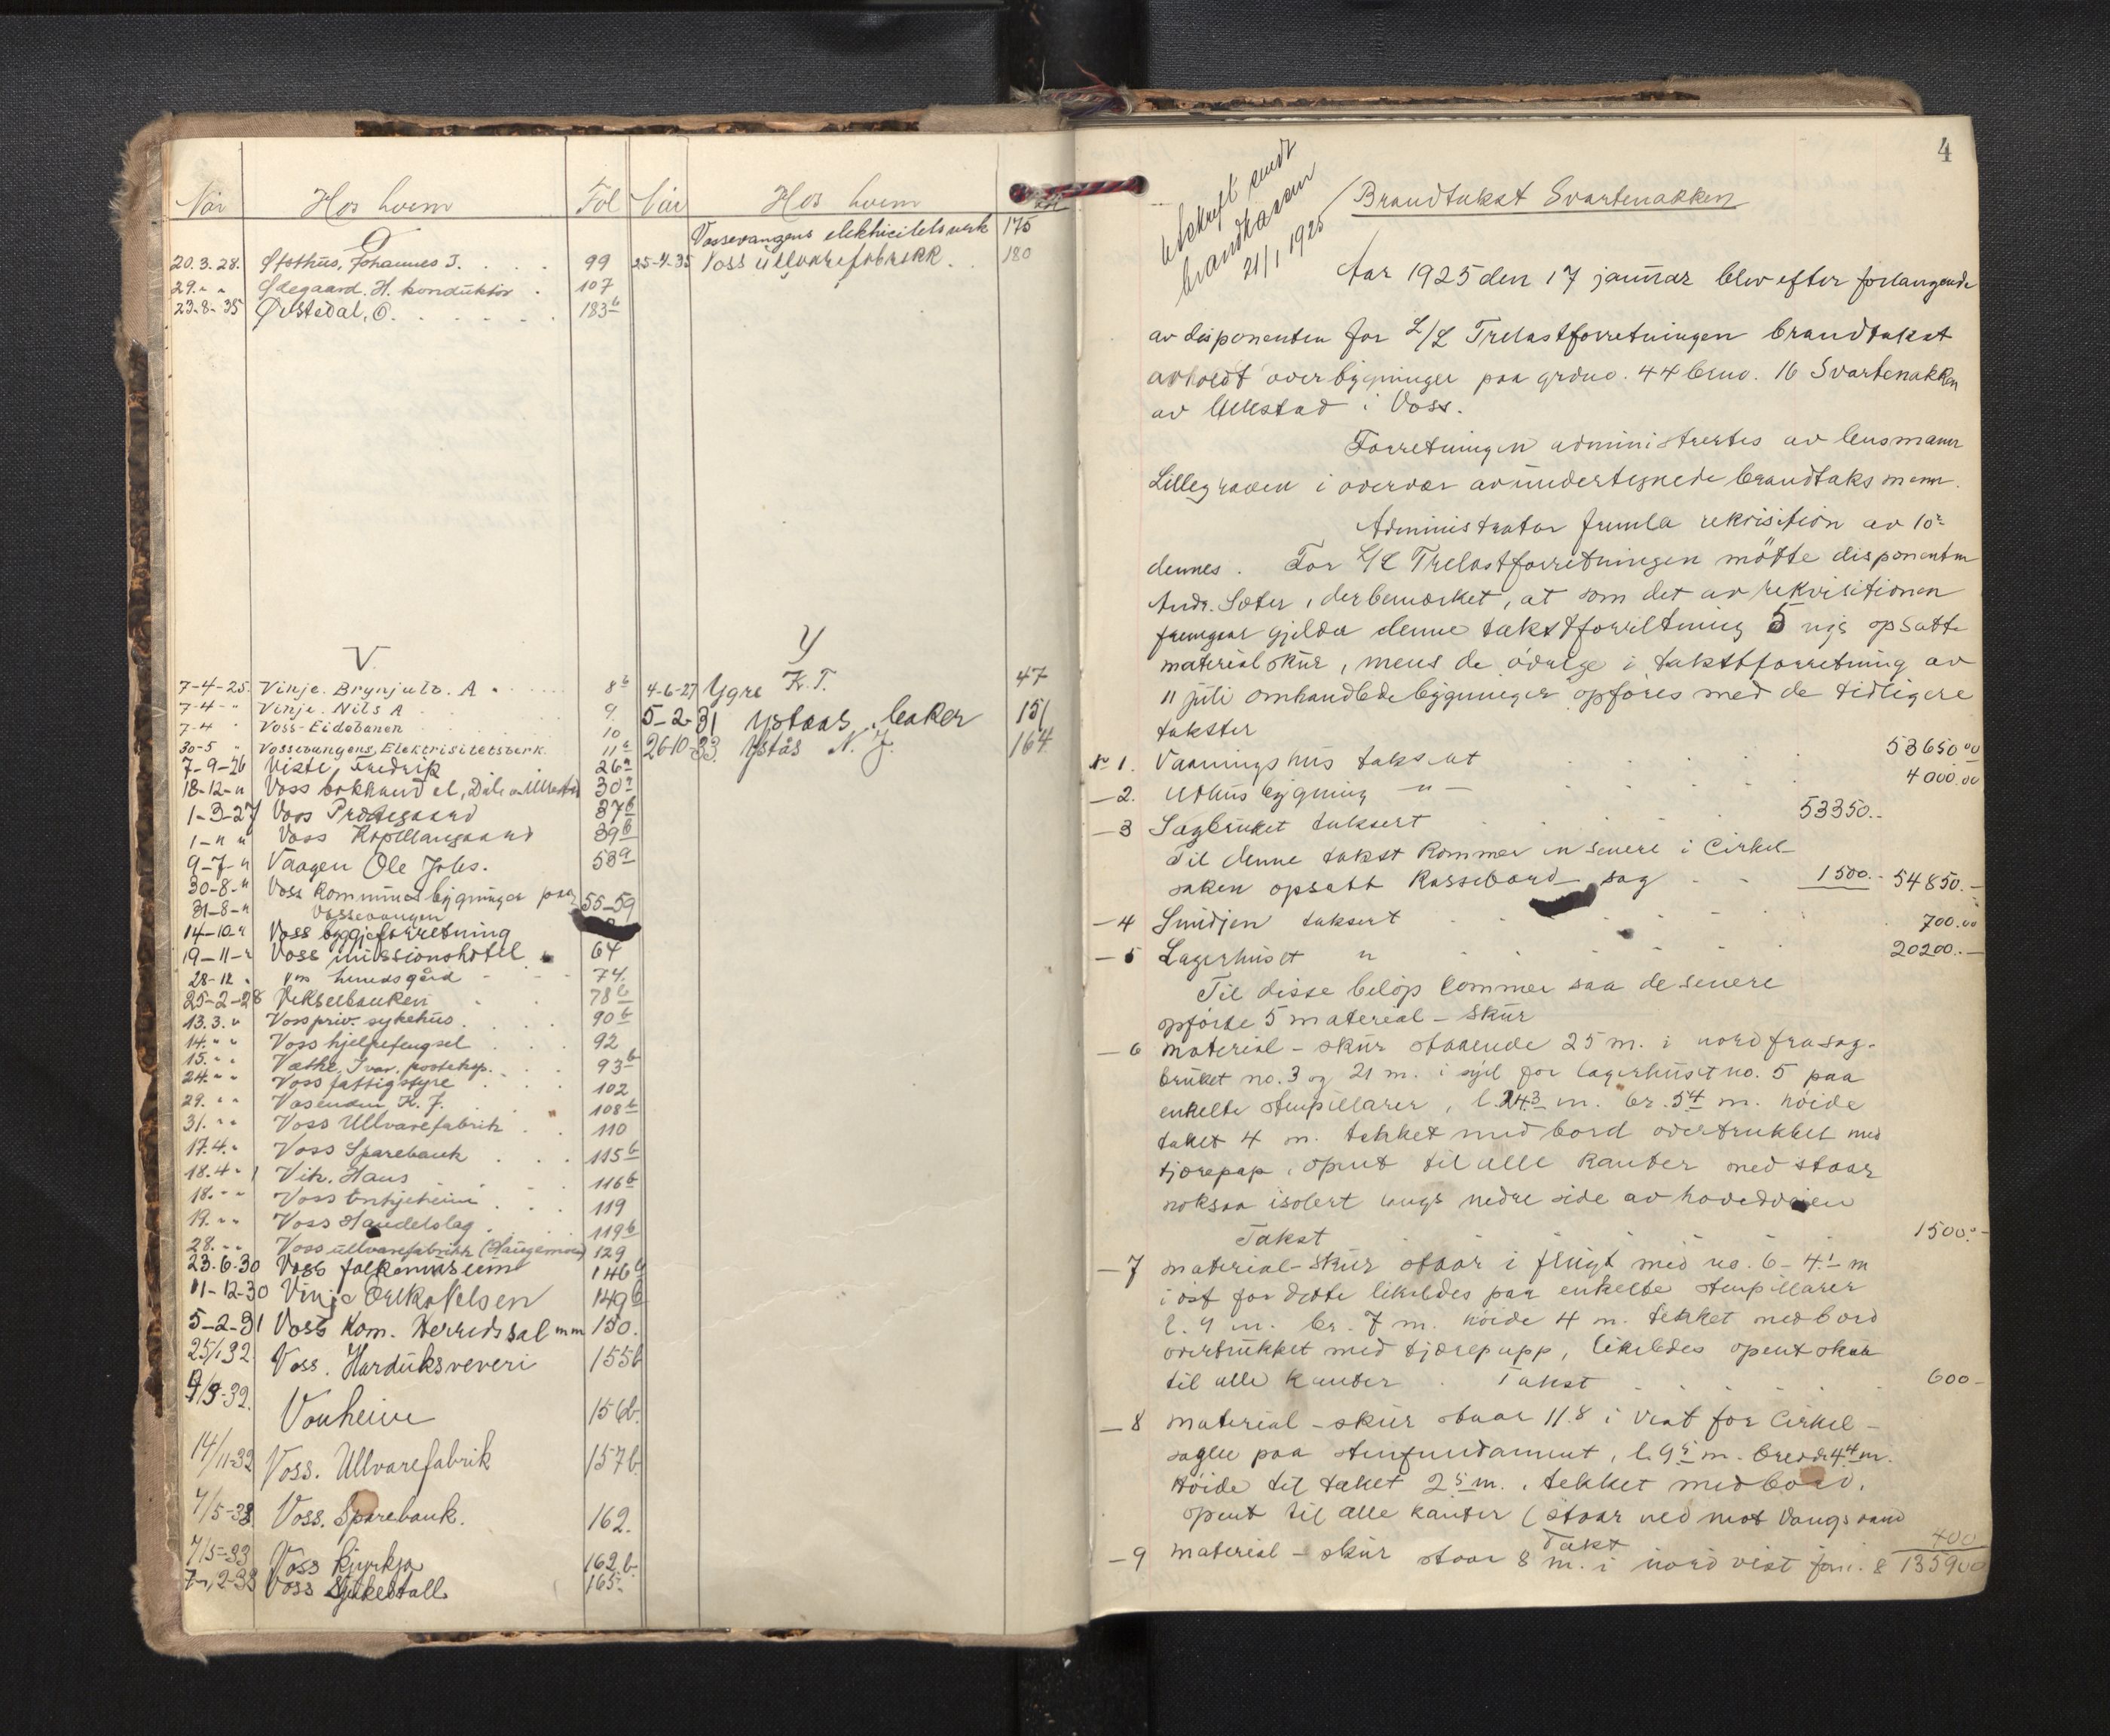 Når Hos hvem Fol
Ø
20.3.28. Østhus, Johannes I. 99
29. " " Ødegaard. H. konduktør 107
23-8-35 Ørstedal, O. 183b
V.
7-4-25. Vinje. Brynjulv. A 8b
7-4- " Vinje. Nils A 9
7-4 " Voss-Eidebanen 10
30-5 " Vossevangens Elektrisitetsverk 11a
7-9-26 Viste, Fredrik 26a
18-12-" Voss bokhandel, 30a
1-3-27 Voss Prestegaard 37b
1-" " Voss Kapellangaard 39b
9-7-" Vaagen Ole Johs. 53a
30-8-" Voss kommunes bygninger paa 55-59
31-8-" Vossevangen
14-10-" Voss byggjeforretning
19-11-" Voss missionshotel 64
28-12 " " herredsgård 74.
25-2-28 Vekselbanken 78b
13.3. " Voss priv. sykehus 90b
14. " " Voss hjelpefengsel 92
15. " " Væthe, Ivar, posteksp. 93b
24. " " Voss fattigstyre 102
29. " " Vasenden K. J. 108b
31. " " Voss Ullvarefabrik 110
17.4. " Voss Sparebank 115b
18.4. " Vik. Hans 116b
18. " " Voss 119
19. " " Voss Handelslag 119b
28. " " Voss ullvarefabrikk (Haugamoen) 129
23.6.30 Voss folkemuseum 146b
11-12-30 Vinje Nilsen 149b
5-2-31 Voss Kom. Herredssal m m 150.
25/1 32. Voss. Hardüksveveri 155b
9/9-32. Vonheim 156b.
14/11-32 Voss. Ullvarefabrik 157b
7/5-33 Voss. Sparebank. 162.
7/5-33 Voss kjyrkja 162.b.
7-12-33 Voss Sjukestall 165.
Når Hos hvem
Vossevangens elektricitetsverk 175
25-4-35 Voss ullvarefabrikk 180
Y
4-6-27 Ygre K.T. 47
5-2-31 Ystaas, baker 151
26-10-33. Ystås N. J. 164
4
Utskrift sendt
brandkassen
21/1 1925
Brandtakst Svartenakken
Aar 1925 den 17 januar blev efter forlangende
av disponenten for L/L Trelastforretningen brandtakst
avholdt over bygninger paa grdno. 44 brno. 16 Svartenakken
av Ullestad i Voss.
Forretningen administrertes av lensmann
Lillegraven i overvær av undertegnede brandtaksmenn.
Administrator fremla rekvisition av 10de
dennes. For L/L Trelastforretningen mötte disponenten
Andr. Sæter, der bemerket, at som det av rekvisitionen
fremgaar gjelder denne takstforretning 5 nys opsatte
materialskur, mens de övrige i takstforretning av
11 juli omhandlede bygninger opföres med de tidligere
takster
No 1. Vaaningshus taksert 53650.00
- 2. Uthusbygning - " - 4000.00
- 3 Sagbruket taksert 53350.-
Til denne takst kommer en senere i Cirkel-
saken opsatt kassebord - sag 1500.- 54850.-
- 4 Smidjen taksert 700.00
- 5 Lagerhuset " 20200.-
Til disse belöp kommer saa de senere
opförte 5 material - skur
- 6 Material - skur staaende 25 m. i nord fra sag-
bruket no. 3 og 21 m. i syd for lagerhuset no. 5 paa
enkelte stenpillarer, l. 24.3 m. br. 5.4 m. höide
taket 4 m. tekket med bord overtrukket med
tjærepap, opent til alle kanter med staar
noksaa isolert langs nedre side av hovedveien
Takst 1500.-
- 7 Material - skur staar i flugt med no. 6 - 4.1 m
i öst for dette likeledes paa enkelte stenpillarer
l. 9 m. br. 7 m. höide 4 m. tekket med bord
overtrukket med tjærepapp, likeledes opent skur
til alle kanter. Takst 600-
- 8 Material - skur staar 11.8 i vest for Cirkel-
sagen paa stenfundament, l. 9.5 m. bredde 4.4 m.
Höide til taket 2.5 m., tekket med bord,
opent til alle kanter (staar ned mot Vangsvand
Takst 400
- 9 Material - skur staar 8 m. i nord vest for no. 8 135900